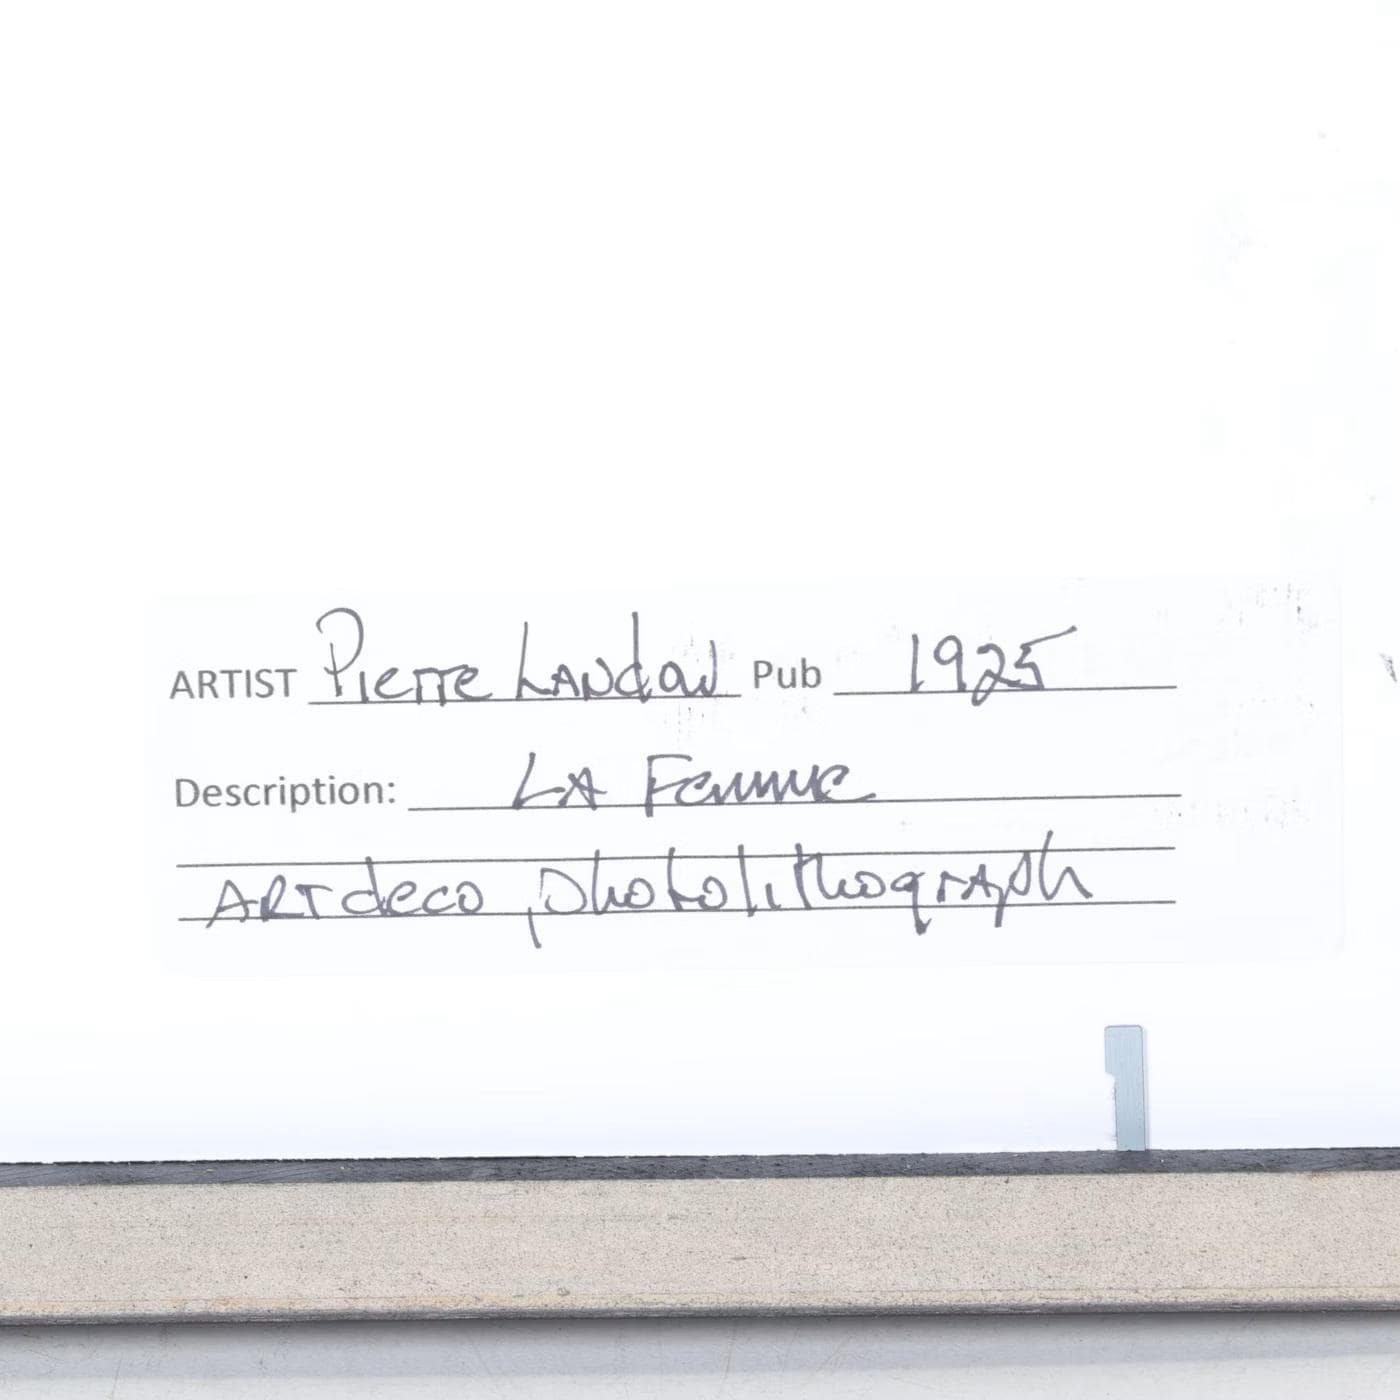 ARTIST Pierre Landau Pub 1925
Description: LA Femme
ARTdeco photolithograph